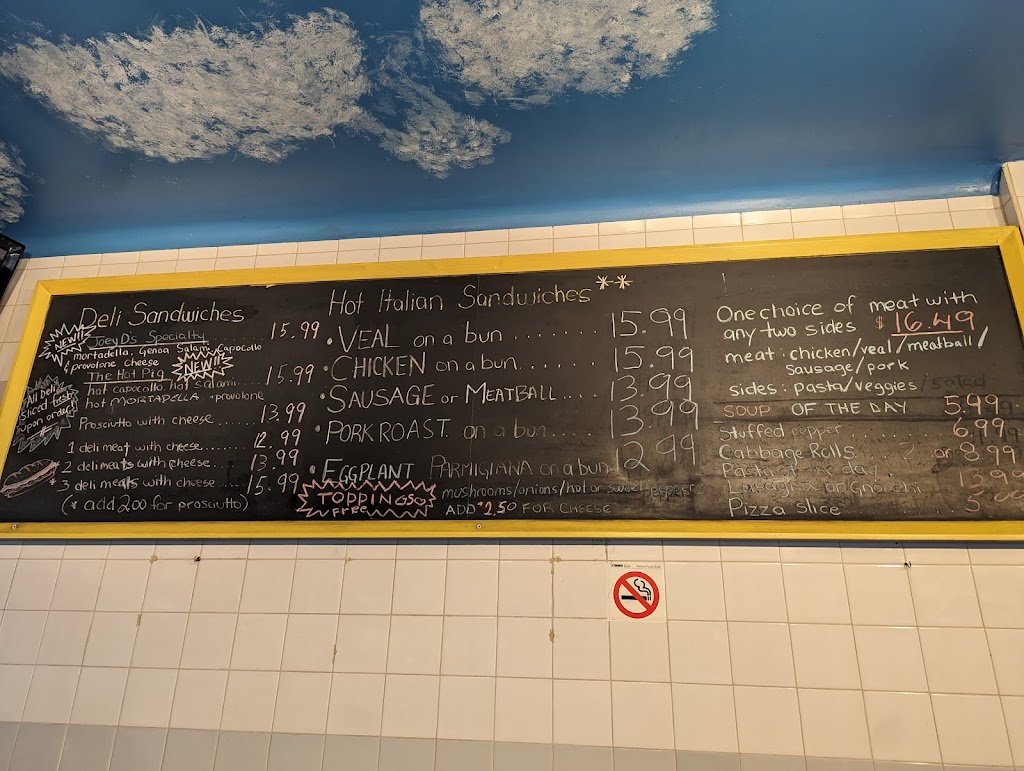 Deli Sandwiches
NEW!!
JoeyD's Specialty 15.99
mortadella, Genoa Salami, Capocollo
& provolone cheese
NEW!!
The Hot Pig
hot capocollo, hot salami.... 15.99
hot MORTADELLA + provolone
All Deli
Sliced fresh
upon order
Prosciutto with cheese...... 13.99
1 deli meat with cheese....... 12.99
2 deli meats with cheese.... 13.99
* 3 deli meats with cheese.... 15.99
(* add 2.00 for prosciutto)
Hot Italian Sandwiches **
• VEAL on a bun ...... 15.99
• CHICKEN on a bun...... 15.99
• SAUSAGE or MEATBALL.... 13.99
• PORK ROAST on a bun.... 13.99
• EGGPLANT PARMIGIANA on a bun 12.99
TOPPINGS
FREE
mushrooms/onions/hot or sweet peppers
ADD $2.50 FOR CHEESE
One choice of meat with
any two sides $16.49
meat: chicken/veal/meatball/
sausage/pork
sides: pasta/veggies/salad
SOUP OF THE DAY 5.99
Stuffed pepper 6.99
Cabbage Rolls for 8.99
Pasta of the day 13.99
Lasagna or Gnocchi
Pizza Slice 5.00
TORONTO